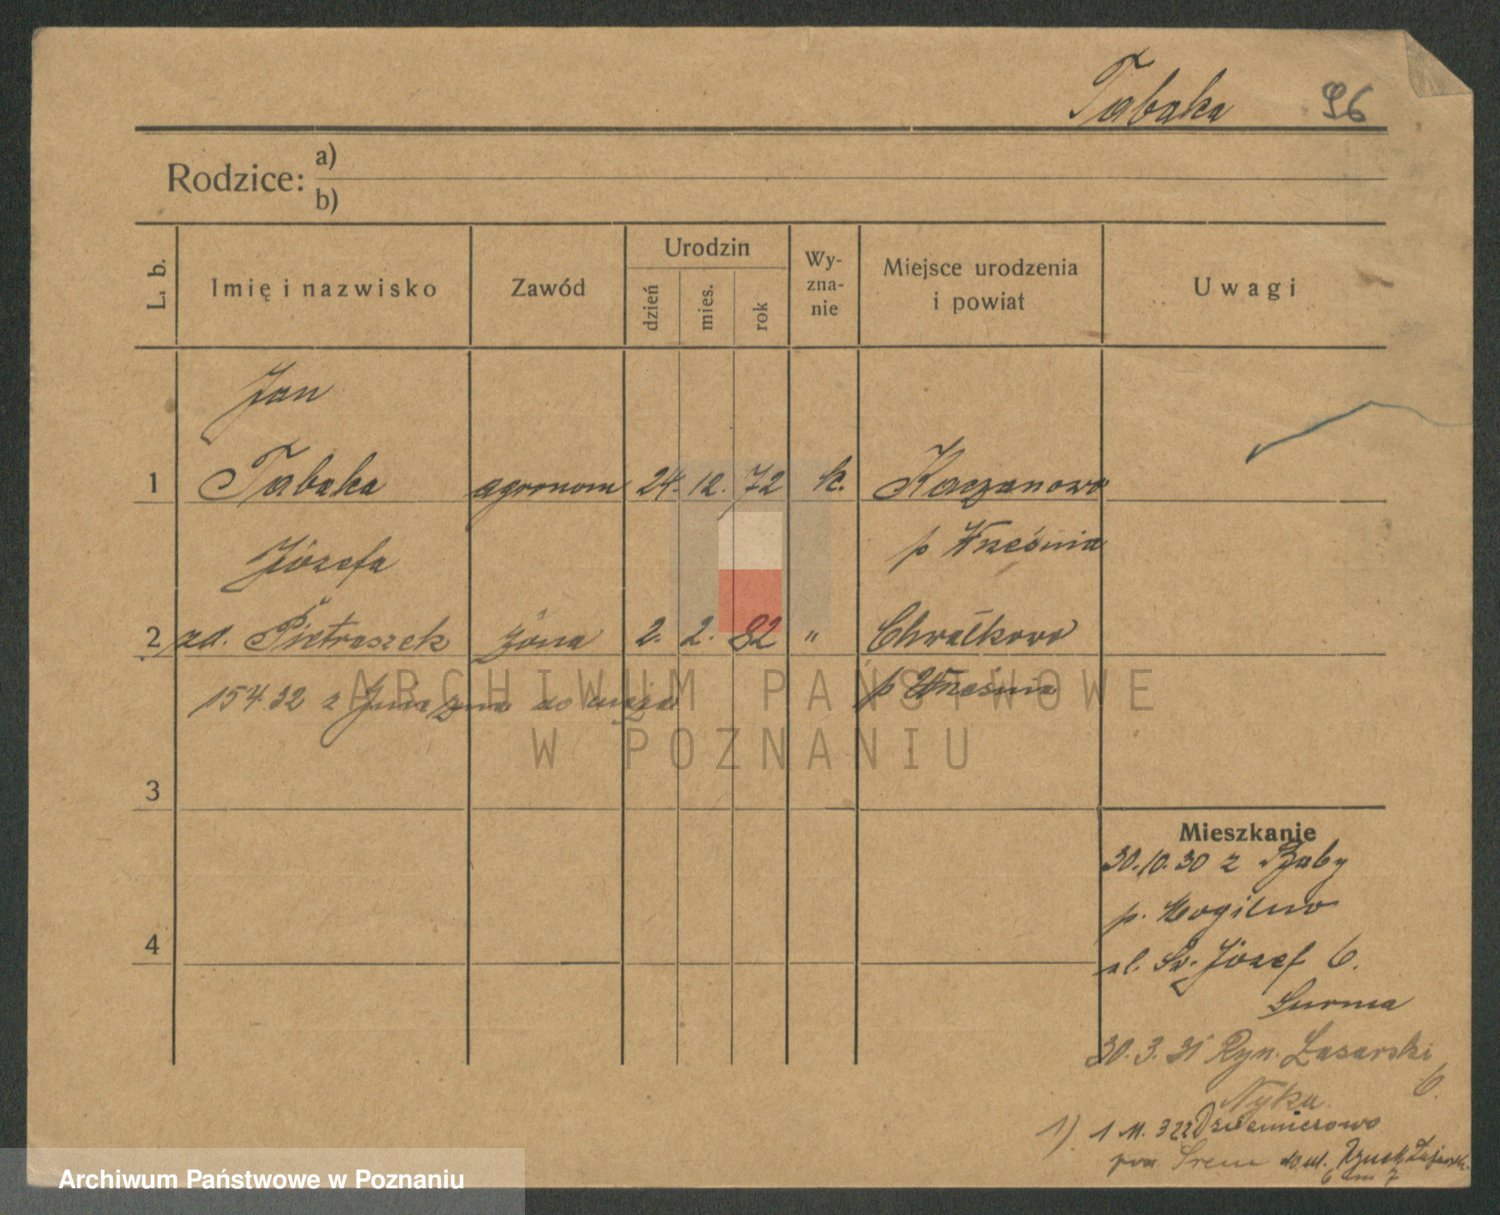 Tabaka 96
Rodzice: a)
b)
L. b.
Imię i nazwisko
Zawód
Urodzin
dzień
mies.
rok
Wy-
zna-
nie
Miejsce urodzenia
i powiat
Uwagi
Jan
1 Tabaka agronom 24. 12. 72 k. Kaczanowo
p Września
Józefa
2 zd. Pietraszek żona 2. 2. 82 " Chwałkowo
p Września
15 4 32 z Gniezna do męża
3
4
Mieszkanie
30.10.30 z Baby
p. Mogilno
ul. Św. Józef 6.
Surma
30. 3. 31 Ryn. Łazarski
6.
Nyka
1) 1 11. 32 z
pow. Śrem do ul. Rynek Łazarsk.
6 m 7
ARCHIWUM PAŃSTWOWE
W POZNANIU
Archiwum Państwowe w Poznaniu